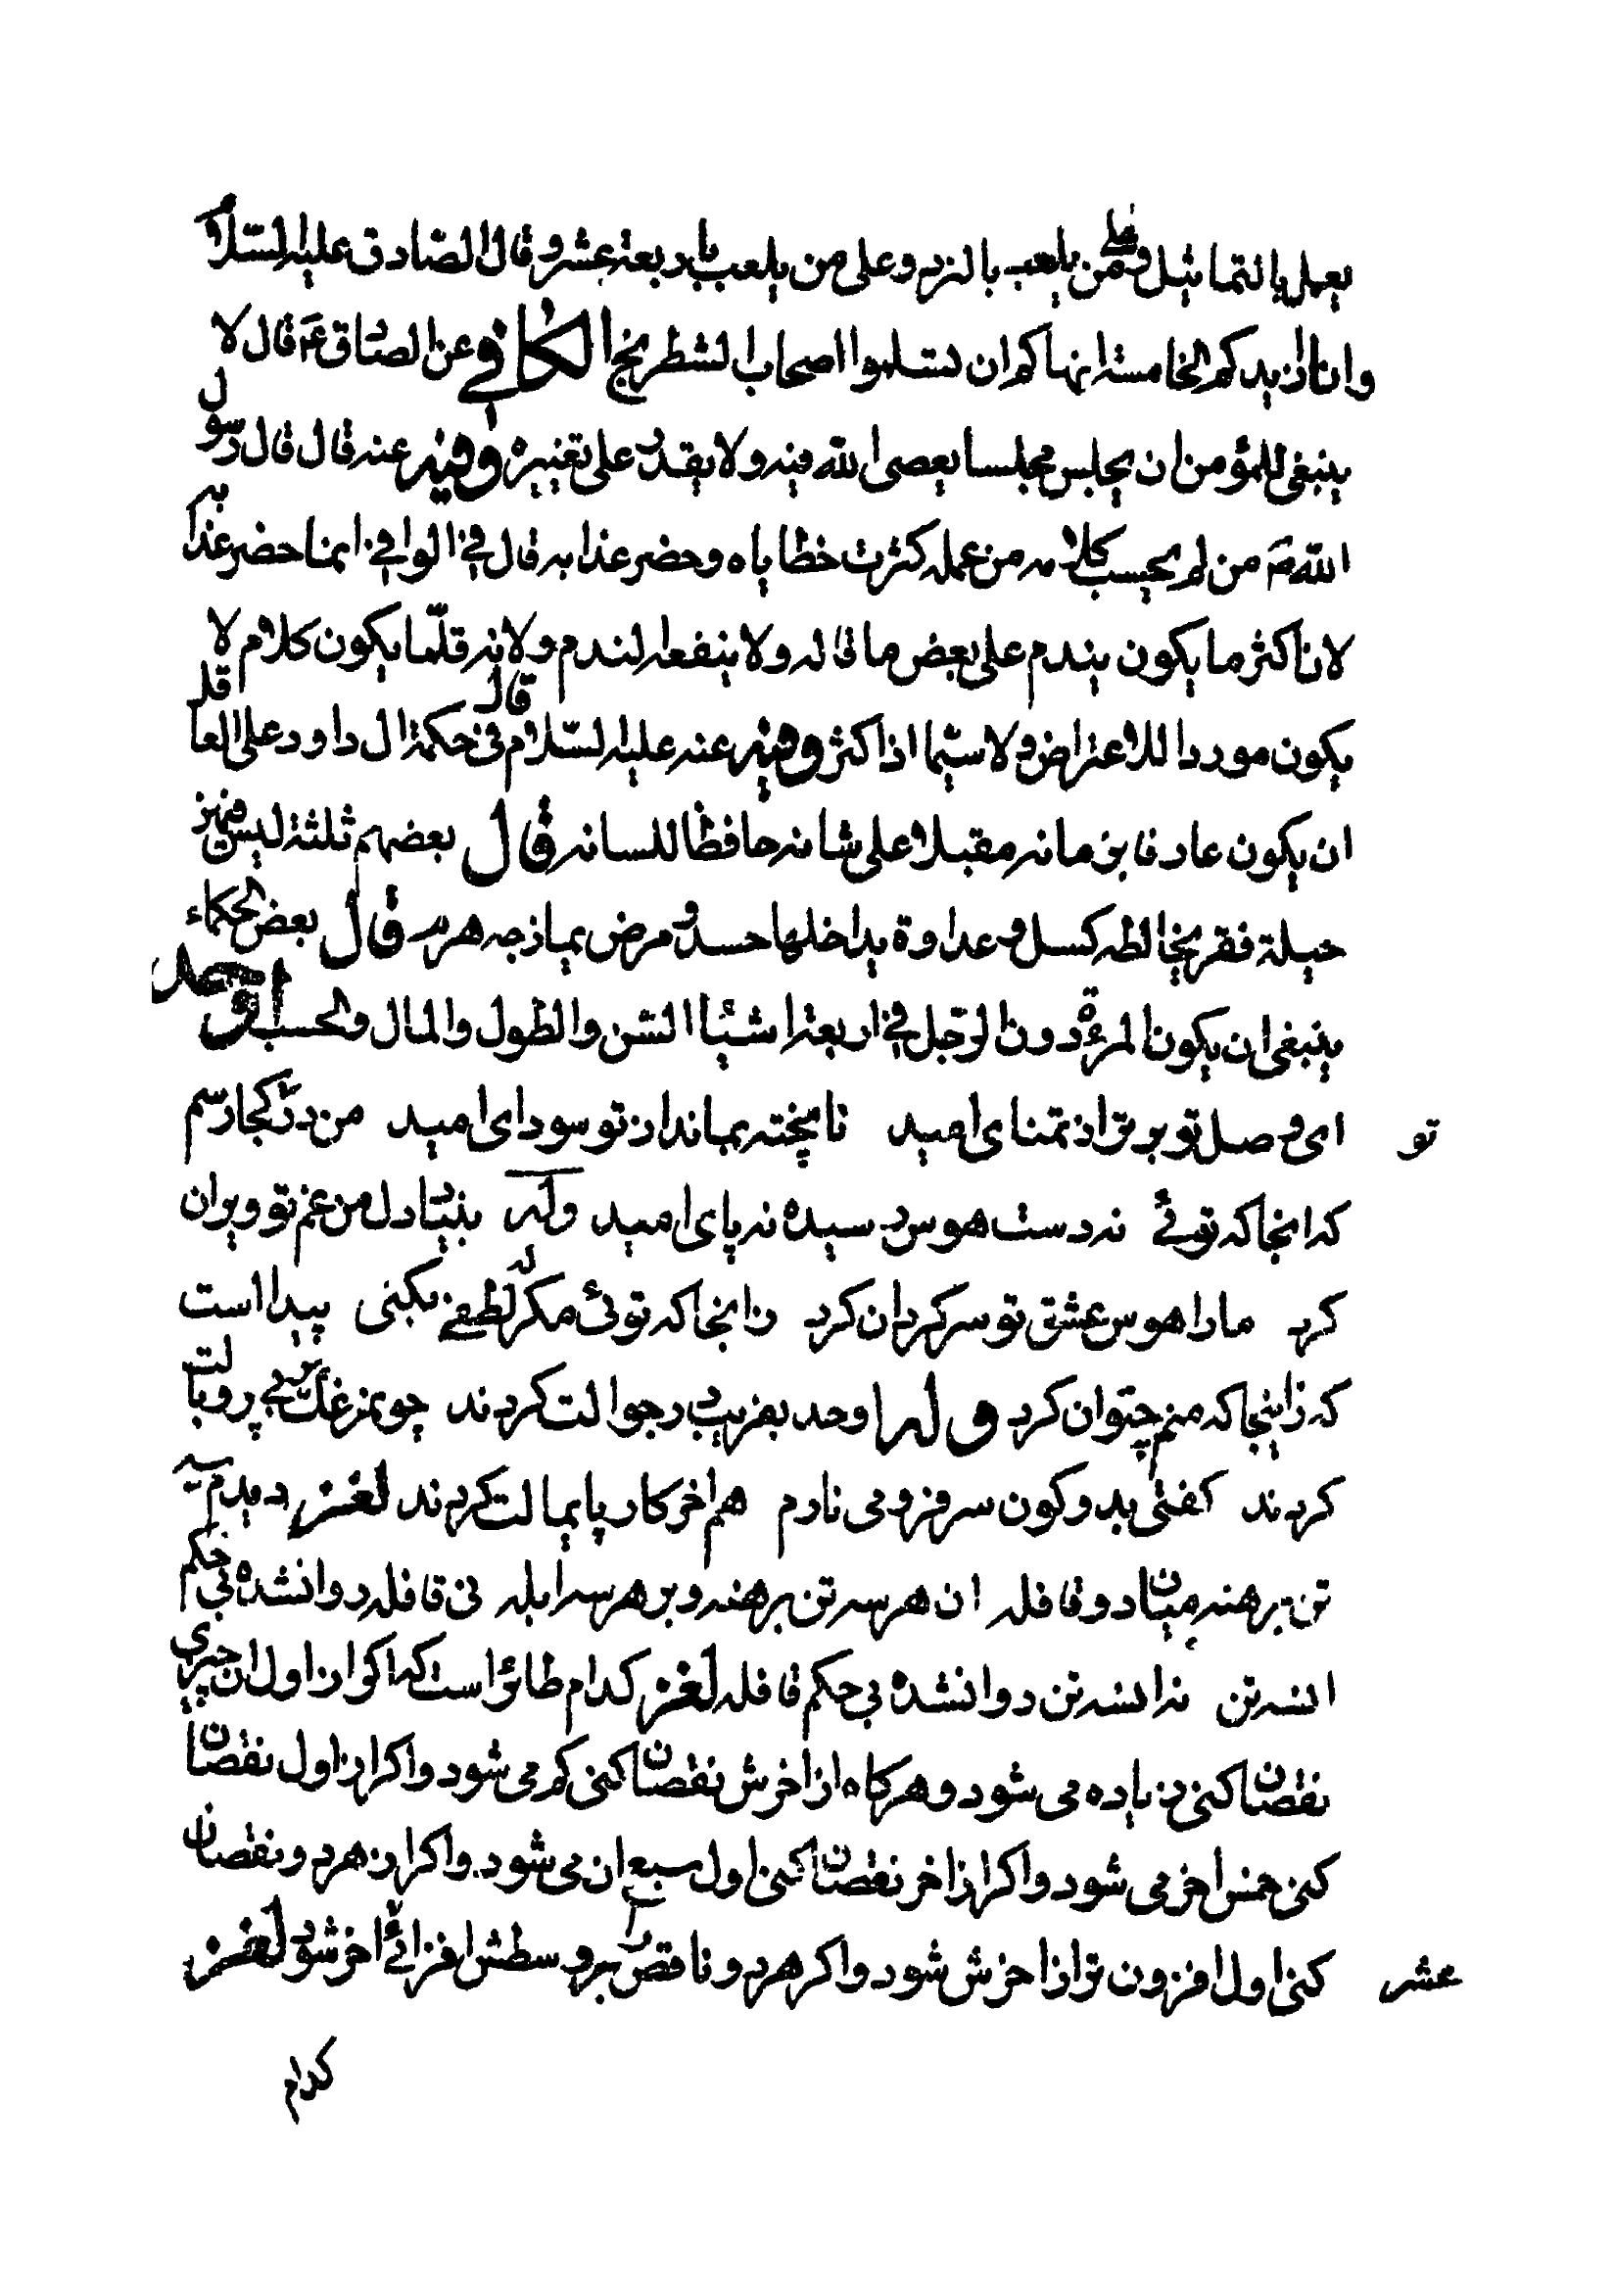 يعمل بالتماثيل وعلى من يلعب بالنرد وعلى من يلعب باربعة عشر وقال الصادق عليه السلام
وانا ازيدكم الخامسة انهاكم ان تسلموا اصحاب الشطرنج الكافي عن الصادق ع قال لا
ينبغي للمؤمن ان يجلس مجلسا يعصى الله فيه ولا يقدر على تغييره وفيه عنه قال قال رسول
الله ص من لم يحسب كلامه من عمله كثرت خطاياه وحضر عذابه قال في الوافي انما حضر عذابه
لان اكثر ما يكون يندم على بعض ما قاله ولا ينفعه الندم ولانه قلّما يكون كلام لا
يكون موردا للاعتراض ولا سيّما اذا كثر وفيه عنه عليه السّلام قال في حكمة ال داود على العاقل
ان يكون عارفا بزمانه مقبلا على شانه حافظا للسانه قال بعضهم ثلثة ليس فيهن
حيلة فقر يخالطه كسل وعداوة يداخلها حسد ومرض يمازجه هرم قال بعض الحكماء
ينبغي ان يكون المرءة دون الرّجل في اربعة اشياء السّن والطول والمال والحسب اوحد
ای وصل تو برتر از تمنای امید نا پخته بماند از تو سودای امید من در تو کجا رسم
که انجا که توئی نه دست هوس رسیده نه پای امید وله بنیاد دل من غم تو ویران
کرد مارا هوس عشق تو سرکردان کرد زانجا که توئی مکر که لطفی بکنی پیدا است
که زاینجا که منم چتوان کرد وله اوحد بفریب در جوالت کردند چو مرغک بی پر وبالت
کردند کفتی بدو کون سر فرو می نارم هم اخر کار پایمالت کردند لغز دیدم سه
تن برهنه میان دو قافله ان هر سه تن برهنه و بر هر سه ابله نی قافله روان شده بی حکم
انسه تن نه انسه تن روانشده بی حکم قافله لغز کدام طائر است که اکر از اول ان چیزی
نقصان کنی زیاده می شود و هرکاه از اخرش نقصان کنی کم می شود واکر از اول نقصان
کنی خمس اخر می شود واکر از اخر نقصان کنی اول سبع ان می شود واکر از هر دو نقصان
کنی اول افزون تر از اخرش شود واکر هر دو ناقص بر وسطش افزائی اخر شود لغز
تو
عشر
کدام